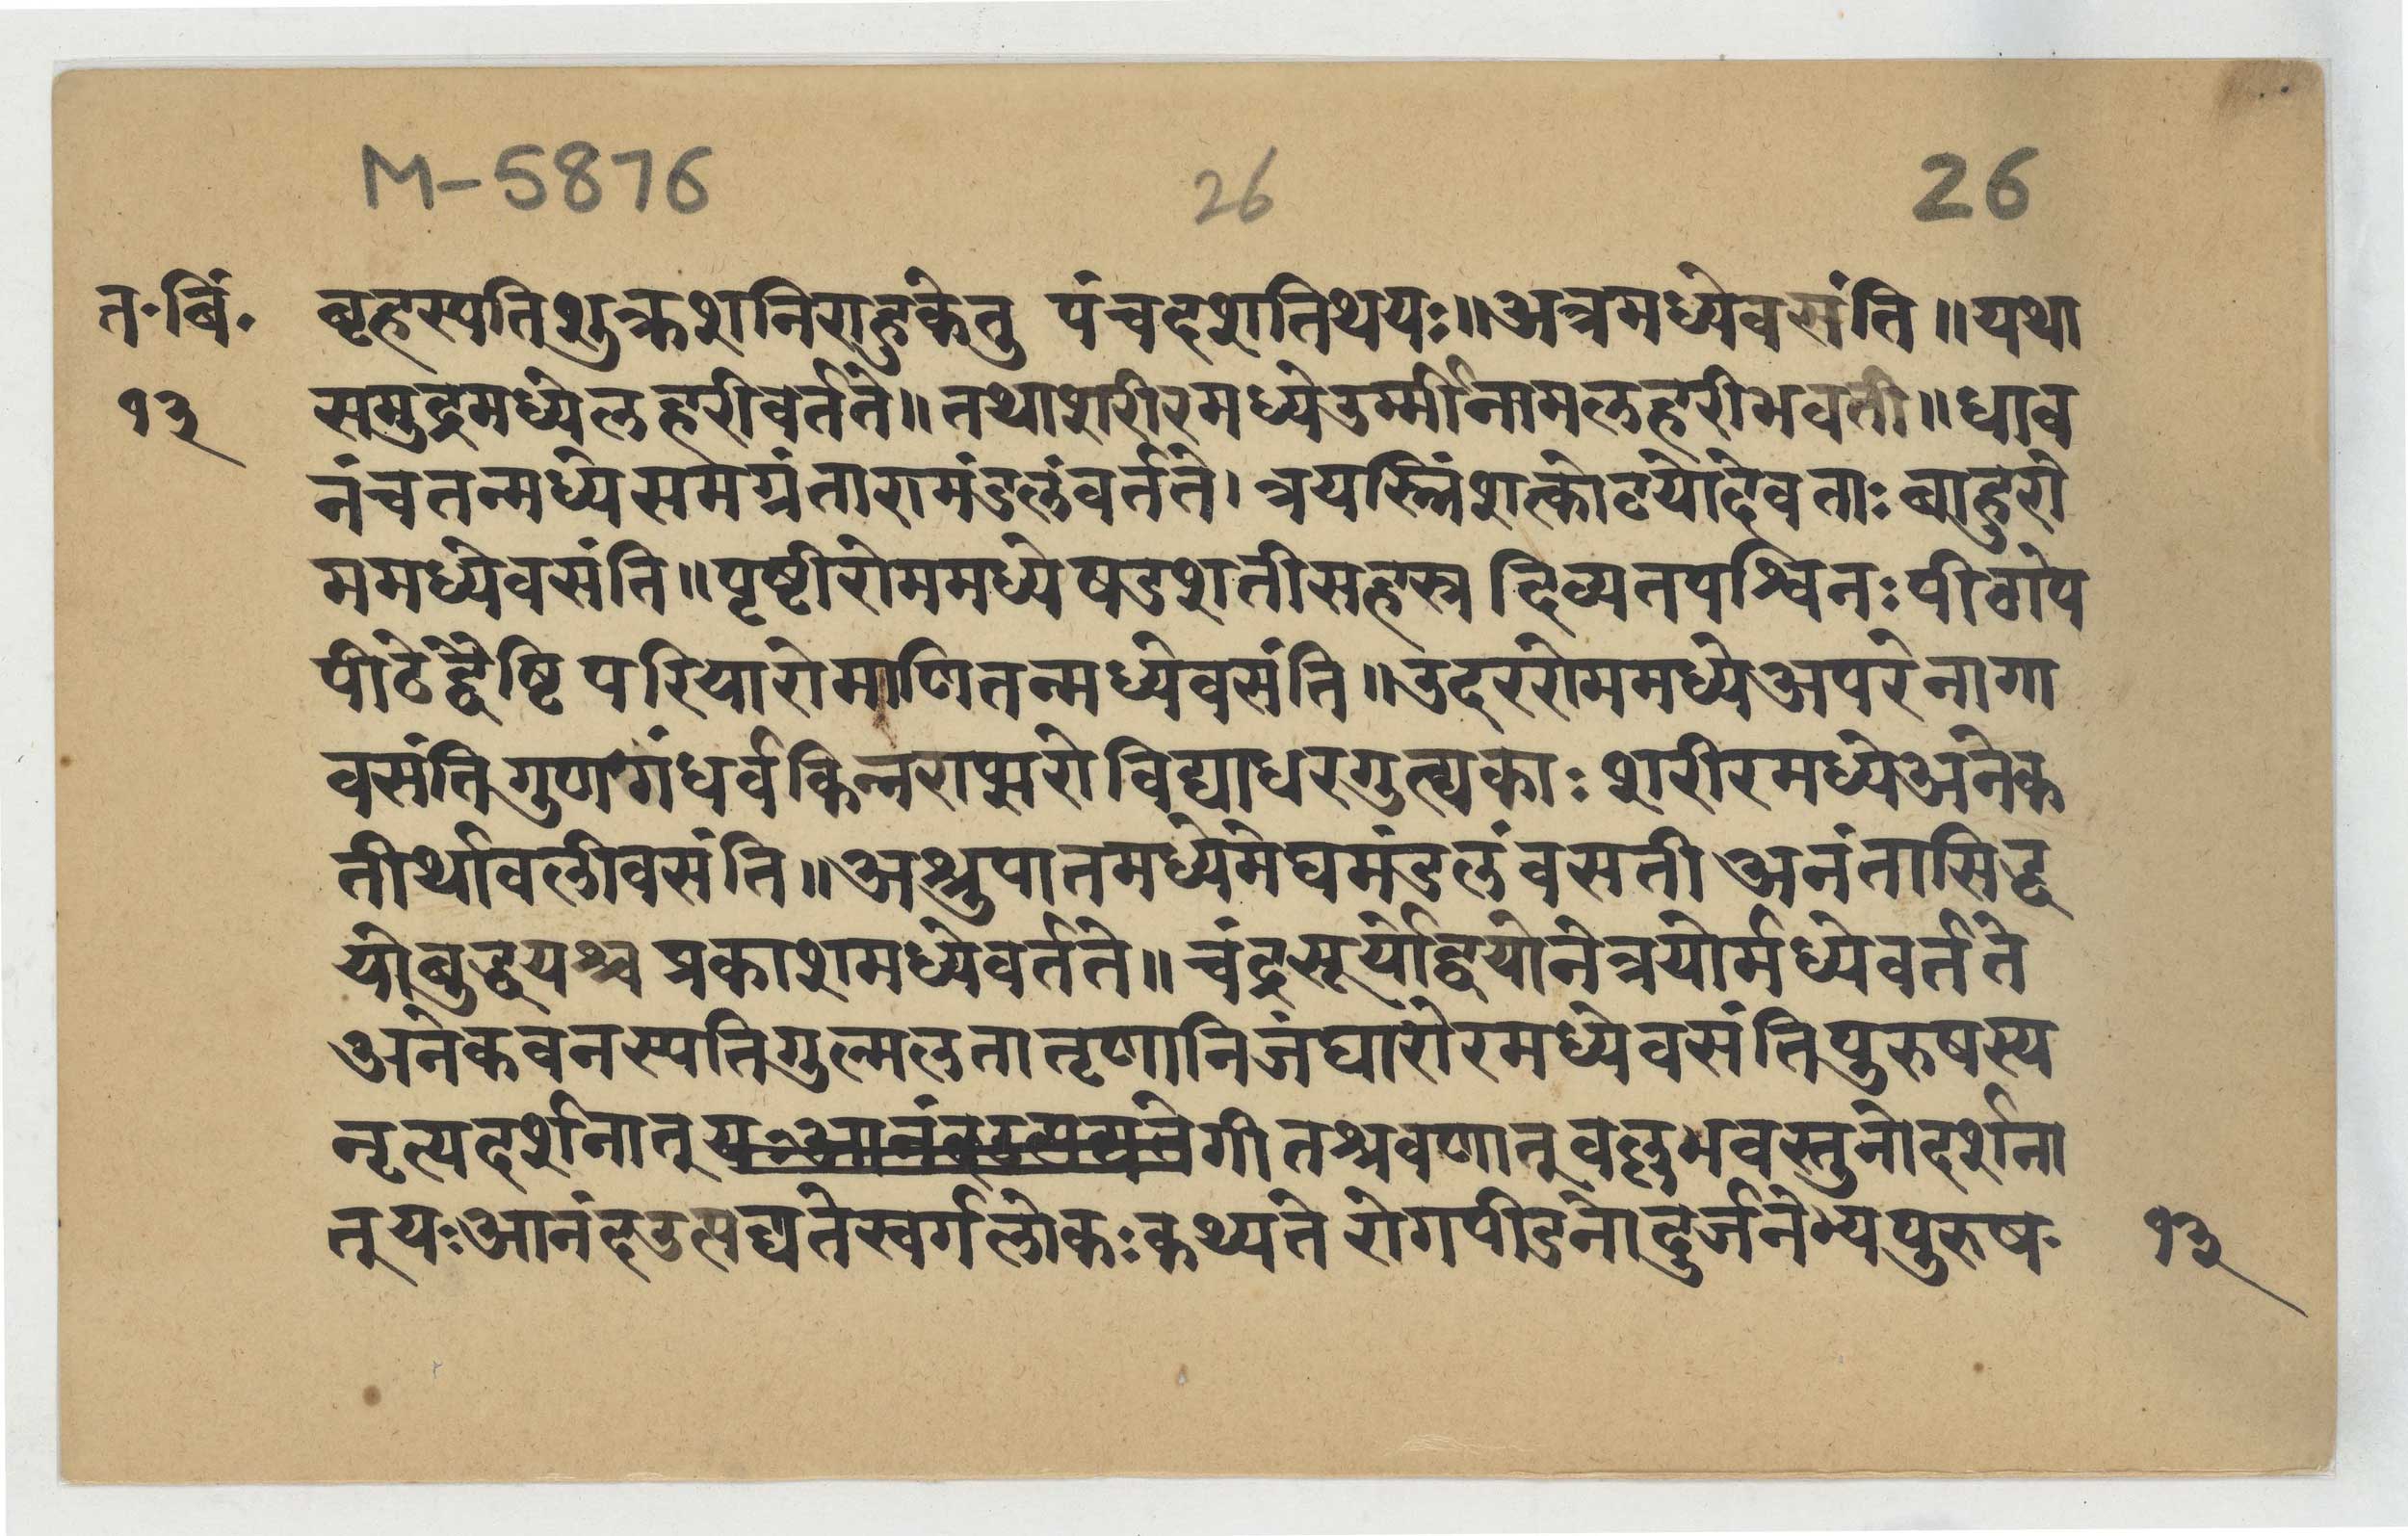 M-5876 26 26
त.बिं. बृहस्पतिशुक्रशनिराहुकेतु पंचदशतिथयः॥अत्रमध्येवसंति॥यथा
१३ समुद्रमध्येलहरीवर्तते॥तथाशरीरमध्येउर्म्मीनामलहरीभवती॥धाव
नंचतन्मध्येसमग्रंतारामंडलंवर्तते। त्रयस्त्रिंशत्कोटयोदेवताः बाहुरो
ममध्येवसंति॥पृष्टीरोममध्येषडशतीसहस्र दिव्यतपश्विनः पीठोप
पीठेद्वैष्टि परियारोमाणितन्मध्येवसंति॥उदररोममध्येअपरेनागा
वसंतिगुणगंधर्वकिन्नराप्सरोविद्याधरगुत्यकाः शरीरमध्येअनेक
तीर्थावलीवसंति॥अश्रुपातमध्येमेघमंडलंवसती अनंतासिद्ध
योबुद्धयश्च प्रकाशमध्येवर्तते॥ चंद्रसूर्योद्वयोनेत्रयोर्मध्येवर्तते
अनेकवनस्पतिगुल्मलतातृणानिजंघारोरमध्येवसंतिपुरुषस्य
नृत्यदर्शनात् यःआनंदउत्पद्यते गीतश्रवणात् वल्लभवस्तुनोदर्शना
त्यःआनंदउत्पद्यतेस्वर्गलोकःकथ्यते रोगपीडनोदुर्जनेभ्यपुरुष. १३